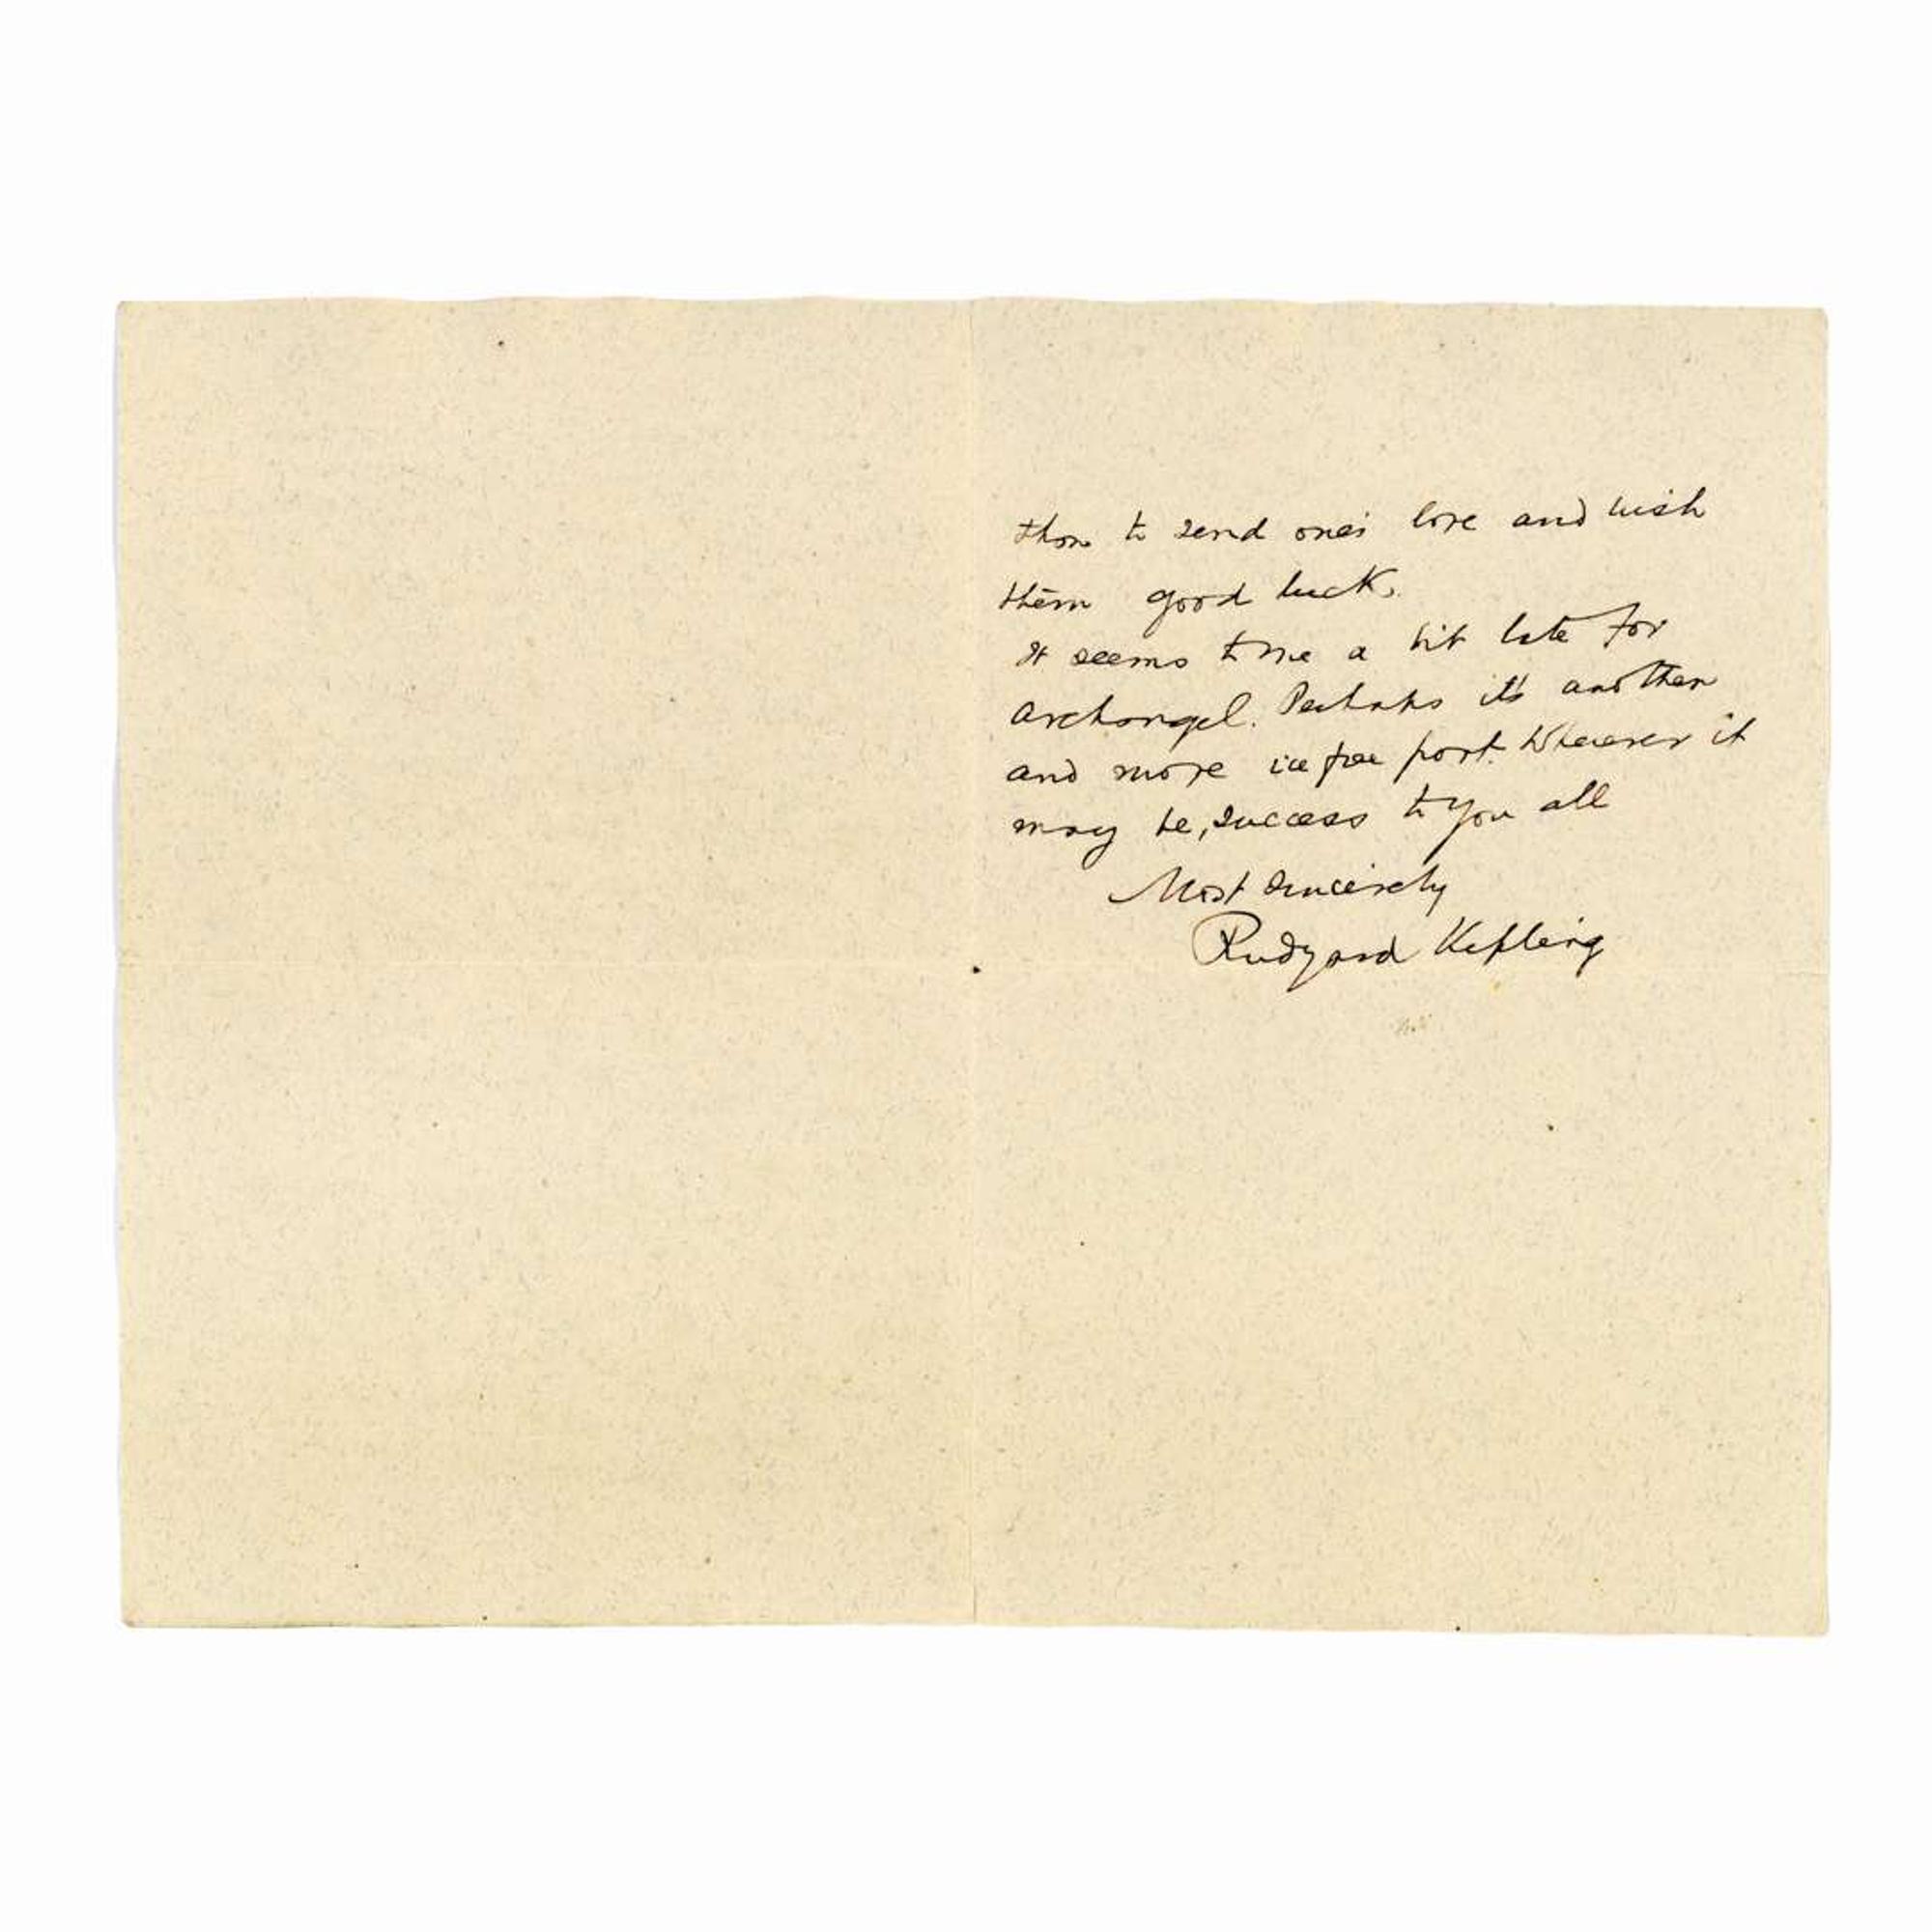 than to send one's love and wish
them good luck.
It seems to me a bit late for
Archangel. Perhaps it's another
and more ice free port. Wherever it
may be, success to you all
Most sincerely
Rudyard Kipling